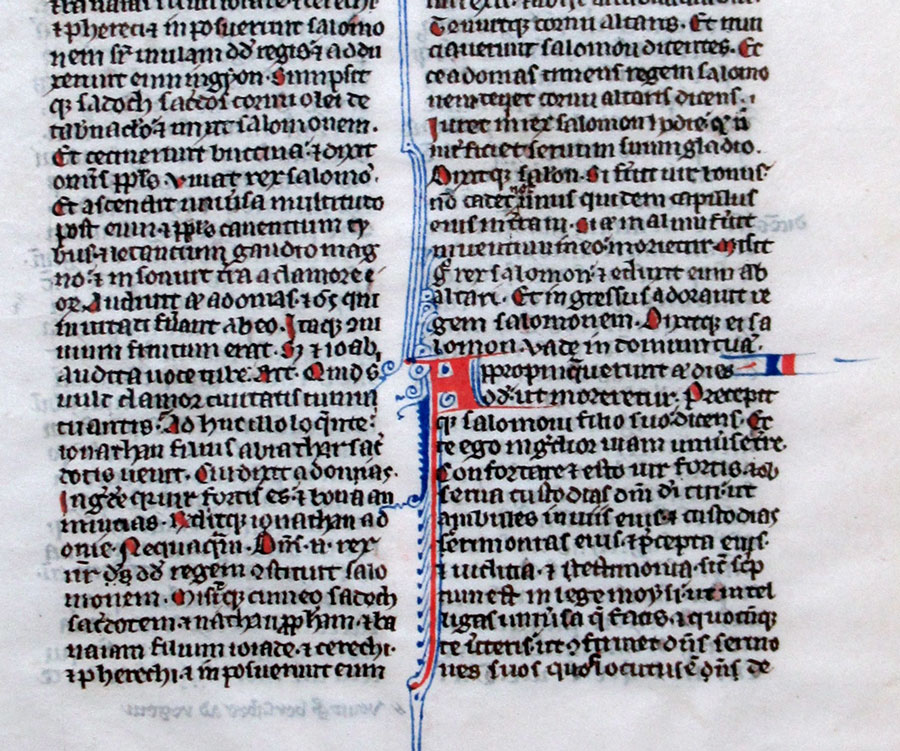 naiam filium ioiade ⁊ cerethi
⁊ pherethi ⁊ inposuerunt salomo
nem sr̄ mulam dd̄ regis ⁊ addu
xerunt eum in gyon. Sumpsit
qꝫ sadoch sacdos cornu olei de
tab̄nacło ⁊ unxit salomonem.
Et cecinerunt buccina. ⁊ dixit
om̄is ppl̄s. vivat rex salomō.
Et ascendit uniūsa multitudo
post eum ⁊ ppl̄s canentium ty
biis ⁊ letancium gaudio mag
no. ⁊ insonuit t̄ra a clamore e
or. Audiuit aū adonias. ⁊ oēs qui
inuitati fūant ab eo. Itaqꝫ 9ui
uium finitum erat. Sꝫ ⁊ ioab
audita uoce tube. Ait. Quid s̄
uult clamor ciuitatis tumul
tuantis. Ad huc illo loq̄nte.
ionathan filius abiathar sac̄
dotis uenit. Cui dixit adonias.
Ingr̄de quia uir fortis es. ⁊ bona an
nuncias. Rn̄ditqꝫ ionathan ad
onie. Nequaq̄m. Dn̄s. n̄. rex
nr̄ dn̄s dd̄ regem 9stituit salo
monem. Misitqꝫ cum eo sadoch
sacdotem ⁊ nathan pph̄am. ⁊ ba
naiam filium ioiade. ⁊ cerethi.
⁊ pherethi. ⁊ inposuerunt eum
Tenuitqꝫ cornu altaris. Et nun
ciauerunt salomoni dicentes. Ec
ce adonias timens regem salomo
nem tenet cornu altaris dicens.
Iuret m̄ rex salomon hodie qꝫ n̄
int̄ficiet seruum suum gladio.
Dixitqꝫ salon. Si fūit uir bonus
nō cadet unus quidem capillus
eius in t̄ram. Si aū malum fūit
inuentum in eo. morietur. Misit
g̊ rex salomon. ⁊ eduxit eum ab
altari. Et ingressus adorauit re
gem salomonem. Dixitqꝫ ei sa
lomon. Vade in domum tuā.
Appropinq̄uerunt aū dies
dd̄. ut moreretur. Precepit
qꝫ salomoni filio suo dicens. Ec
ce ego ingr̄dior uiam uniūse t̄re.
Confortare ⁊ esto uir fortis. ⁊ ob
serua custodias dn̄i di tui. ut
ambules in uiis eius. ⁊ custodias
cerimonias eius ⁊ p̄cepta eius.
⁊ iudicia. ⁊ testimonia. sic̄ sc̄p
tum est in lege moysi. ut intel
ligas uniūsa q̄ facis. ⁊ quocūqꝫ
te ūteris. ut 9firmet dn̄s sermo
nes suos quos locutus ē dn̄s de